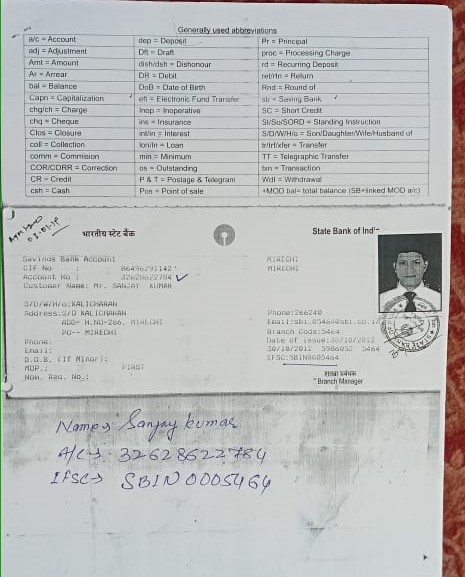 Generally used abbreviations
a/c = Account dep = Deposit Pr = Principal
adj = Adjustment Dft = Draft proc = Processing Charge
Amt = Amount dish/dsh = Dishonour rd = Recurring Deposit
Ar = Arrear DR = Debit ret/rtn = Return
bal = Balance DoB = Date of Birth Rnd = Round of
Capn = Capitalization eft = Electronic Fund Transfer sb = Saving Bank
chg/ch = Charge Inop = Inoperative SC = Short Credit
chq = Cheque ins = Insurance SI/So/SORD = Standing Instruction
Clos = Closure int/in = Interest S/D/W/H/o = Son/Daughter/Wife/Husband of
coll = Collection lon/ln = Loan tr/trf/xfer = Transfer
comm = Commision min = Minimum TT = Telegraphic Transfer
COR/CORR = Correction os = Outstanding txn = Transaction
CR = Credit P & T = Postage & Telegram Wdl = Withdrawal
csh = Cash Pos = Point of sale +MOD bal= total balance (SB+linked MOD a/c)
भारतीय स्टेट बैंक State Bank of India
Savings Bank Account MIRECHI
CIF No : 86496291142 MIRECHI
Account No : 32628622784
Customer Name: Mr. SANJAY KUMAR
S/D/W/H/o: KALICHARAN
Address: S/O KALICHARAN Phone: 266240
ADD- H.NO-266, MIRECHI Email: sbi.05464@sbi.co.in
PO-- MIRECHI Branch Code: 5464
Phone: Date of issue: 30/10/2012
Email: 30/10/2012 5986052 5464
D.O.B. (If Minor): IFSC: SBIN0005464
MOP.: FIRST शाखा प्रबंधक
Nom. Reg. No.: Branch Manager
Name→ Sanjay kumar
A/C→ 32628622784
IFSC→ SBIN0005464